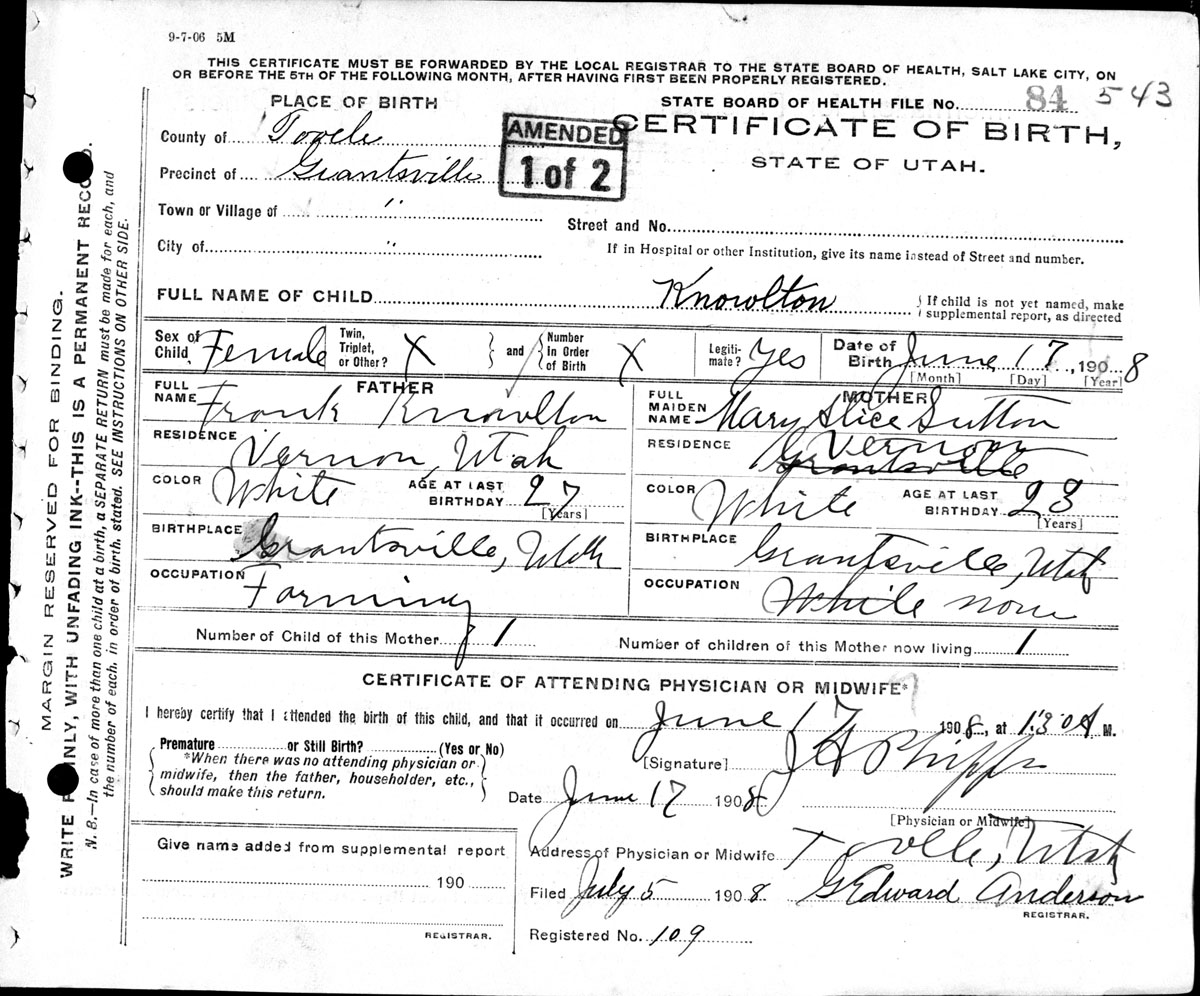 9-7-06 5M
THIS CERTIFICATE MUST BE FORWARDED BY THE LOCAL REGISTRAR TO THE STATE BOARD OF HEALTH, SALT LAKE CITY, ON
OR BEFORE THE 5TH OF THE FOLLOWING MONTH, AFTER HAVING FIRST BEEN PROPERLY REGISTERED.
PLACE OF BIRTH
STATE BOARD OF HEALTH FILE No. 84 543
County of Tooele
AMENDED
1 of 2
CERTIFICATE OF BIRTH,
STATE OF UTAH.
Precinct of Grantsville
Town or Village of "
Street and No.
City of "
If in Hospital or other Institution, give its name instead of Street and number.
FULL NAME OF CHILD Knowlton
{ If child is not yet named, make
supplemental report, as directed
Sex of Child Female
Twin, Triplet, or Other? X
and
Number In Order of Birth X
Legiti- mate? Yes
Date of Birth June 17, 1908
[Month] [Day] [Year]
FATHER
FULL NAME Frank Knowlton
MOTHER
FULL MAIDEN NAME Mary Alice Sutton
RESIDENCE Vernon, Utah
RESIDENCE Vernon
Grantsville
COLOR White
AGE AT LAST BIRTHDAY 27
[Years]
COLOR White
AGE AT LAST BIRTHDAY 23
[Years]
BIRTHPLACE Grantsville, Utah
BIRTHPLACE Grantsville, Utah
OCCUPATION Farming
OCCUPATION White none
Number of Child of this Mother 1
Number of children of this Mother now living 1
CERTIFICATE OF ATTENDING PHYSICIAN OR MIDWIFE*
I hereby certify that I attended the birth of this child, and that it occurred on June 17 1908, at 1:30 A M.
Premature or Still Birth? (Yes or No)
*When there was no attending physician or
midwife, then the father, householder, etc.,
should make this return.
[Signature] J H Phipps
Date June 17 1908
[Physician or Midwife]
Give name added from supplemental report
190
REGISTRAR.
Address of Physician or Midwife Tooele, Utah
Filed July 5 1908 G Edward Anderson
REGISTRAR.
Registered No. 109
MARGIN RESERVED FOR BINDING.
WRITE INLY, WITH UNFADING INK--THIS IS A PERMANENT RECO D.
N. B.—In case of more than one child at a birth, a SEPARATE RETURN must be made for each, and
the number of each, in order of birth, stated. SEE INSTRUCTIONS ON OTHER SIDE.